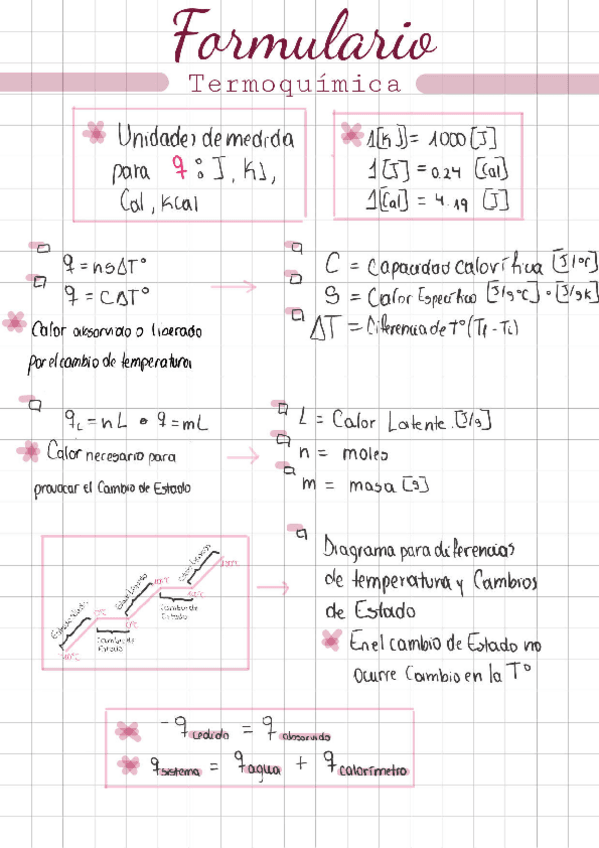 Formulario
Termoquímica
Unidades de medida
para q: J, KJ,
Cal, kcal
1[KJ] = 1000 [J]
1[J] = 0.24 [Cal]
1[Cal] = 4.19 [J]
q = nsΔT°
q = CΔT°
Calor absorvido o liberado
por el cambio de temperatura
C = Capacidad Calorífica [J/°C]
S = Calor Específico [J/g°C] o [J/gK]
ΔT = Diferencia de t° (Tf - Ti)
qL = nL o q = mL
Calor necesario para
provocar el Cambio de Estado
L = Calor Latente [J/g]
n = moles
m = masa [g]
Estado Sólido
0°C
0°C
Cambio de
Estado
Estado Líquido
100°C
Cambio de
Estado
Diagrama para diferencias
de temperatura y Cambios
de Estado
En el cambio de Estado no
Ocurre Cambio en la T°
-q cedido = q absorvido
q sistema = q agua + q calorímetro